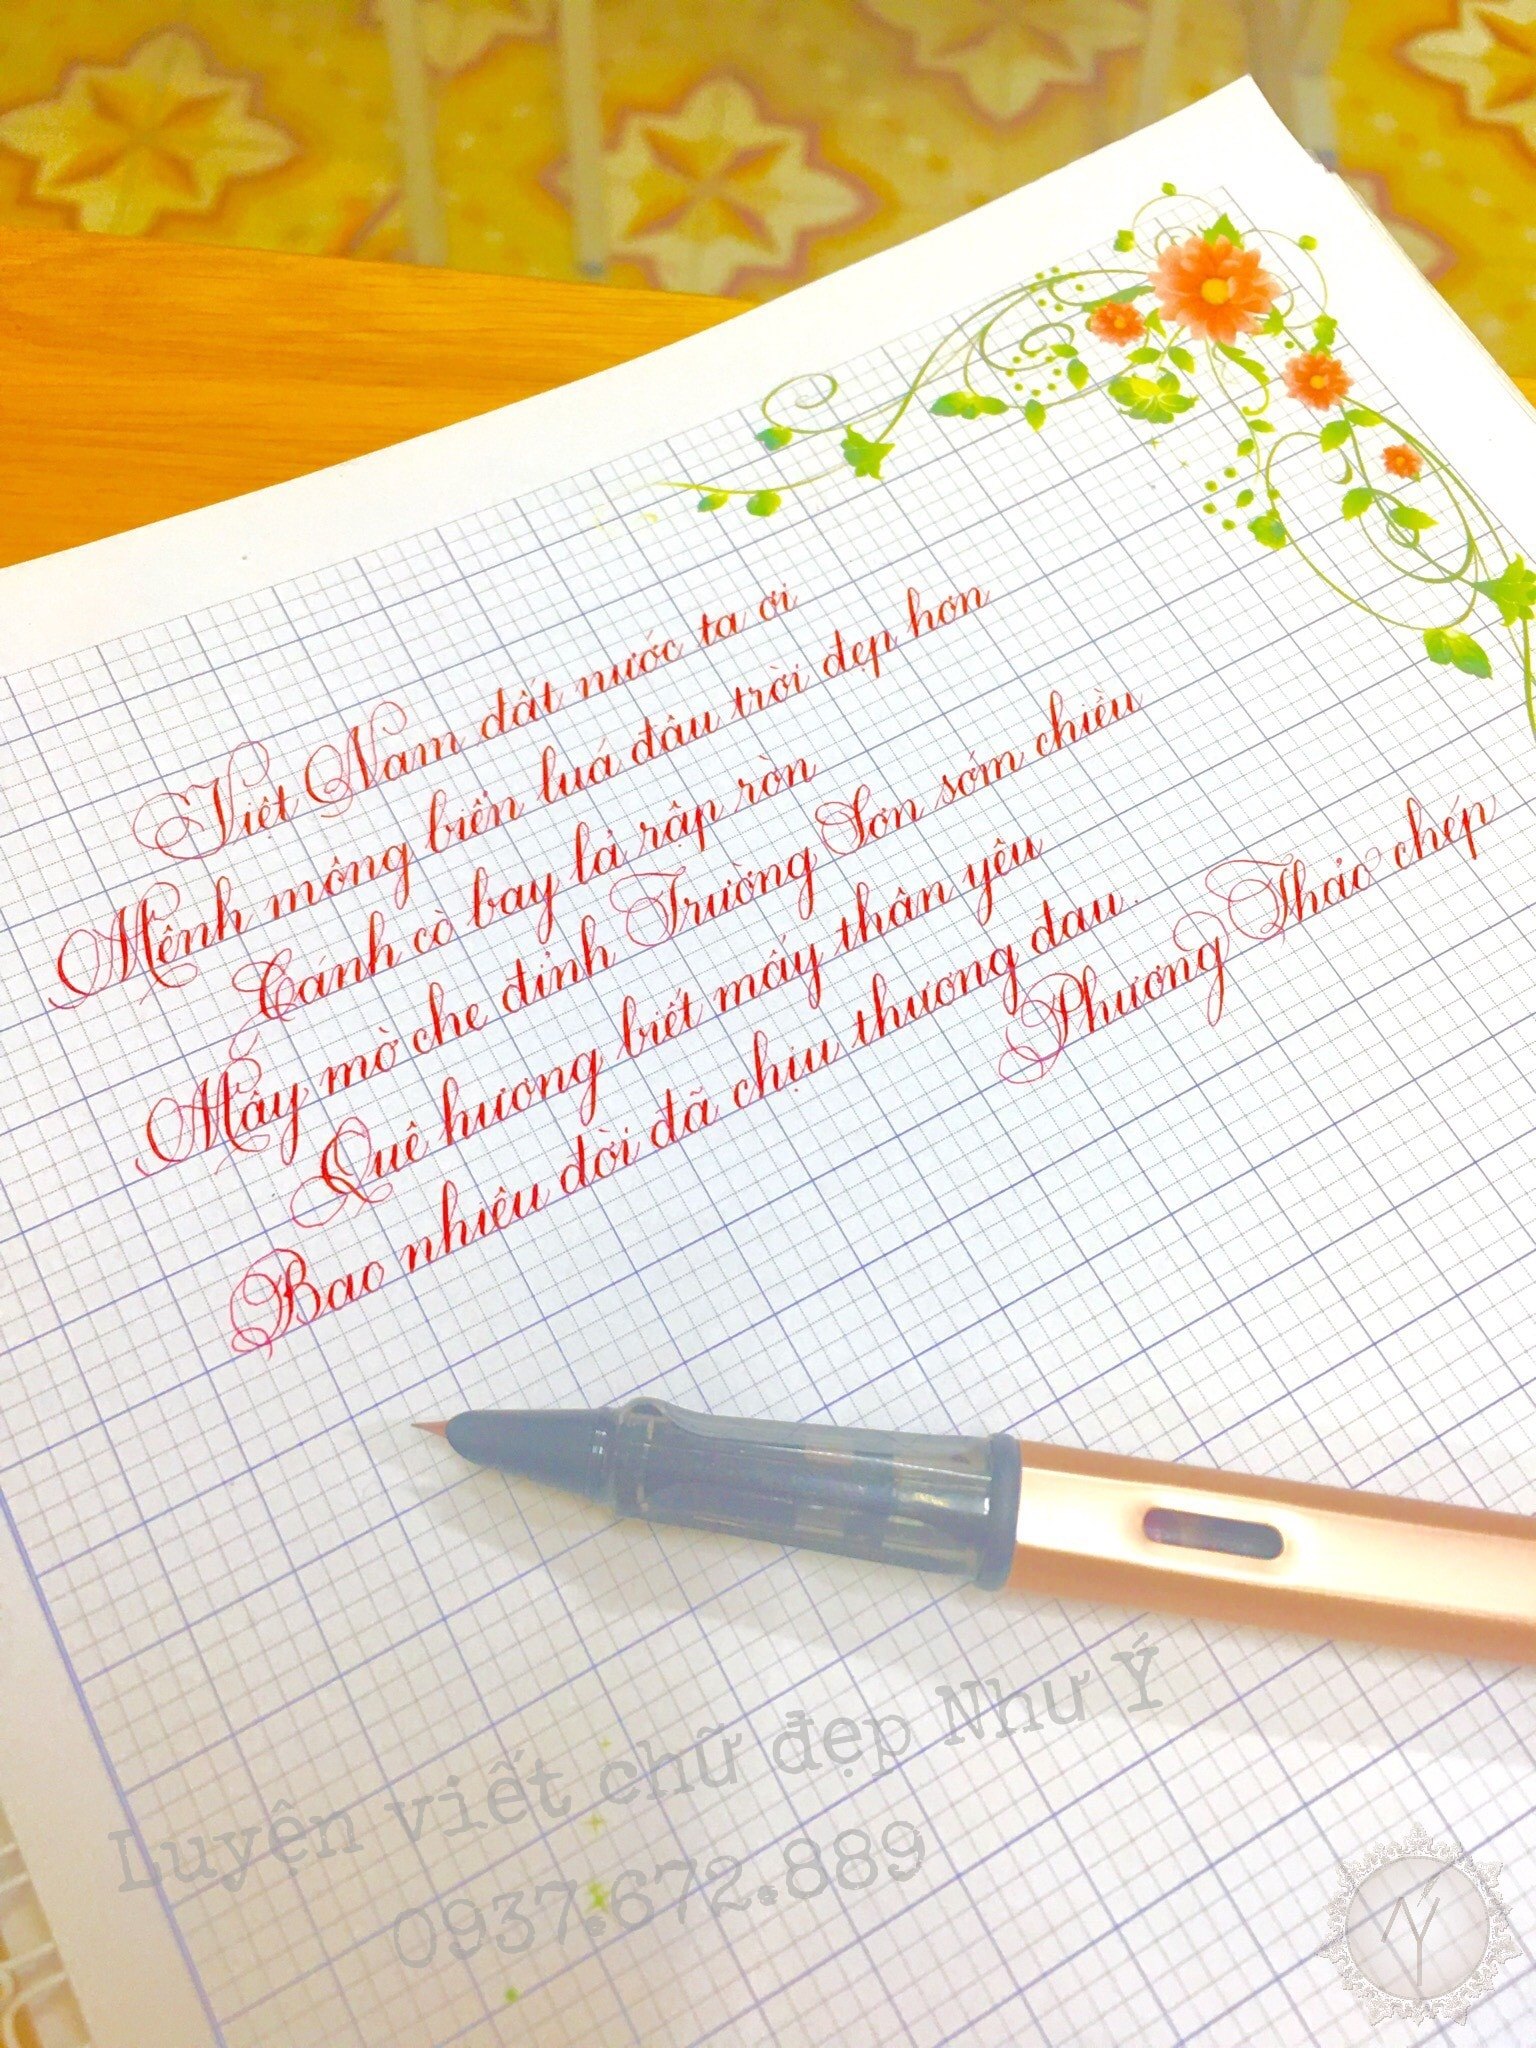 Việt Nam đất nước ta ơi
Mênh mông biển luá đâu trời đẹp hơn
Cánh cò bay lả rập ròn
Mây mờ che đỉnh Trường Sơn sớm chiều
Quê hương biết mấy thân yêu
Bao nhiêu đời đã chịu thương đau.
Phương Thảo chép
Luyện viết chữ đẹp Như Ý
0937.672.889
NÝ